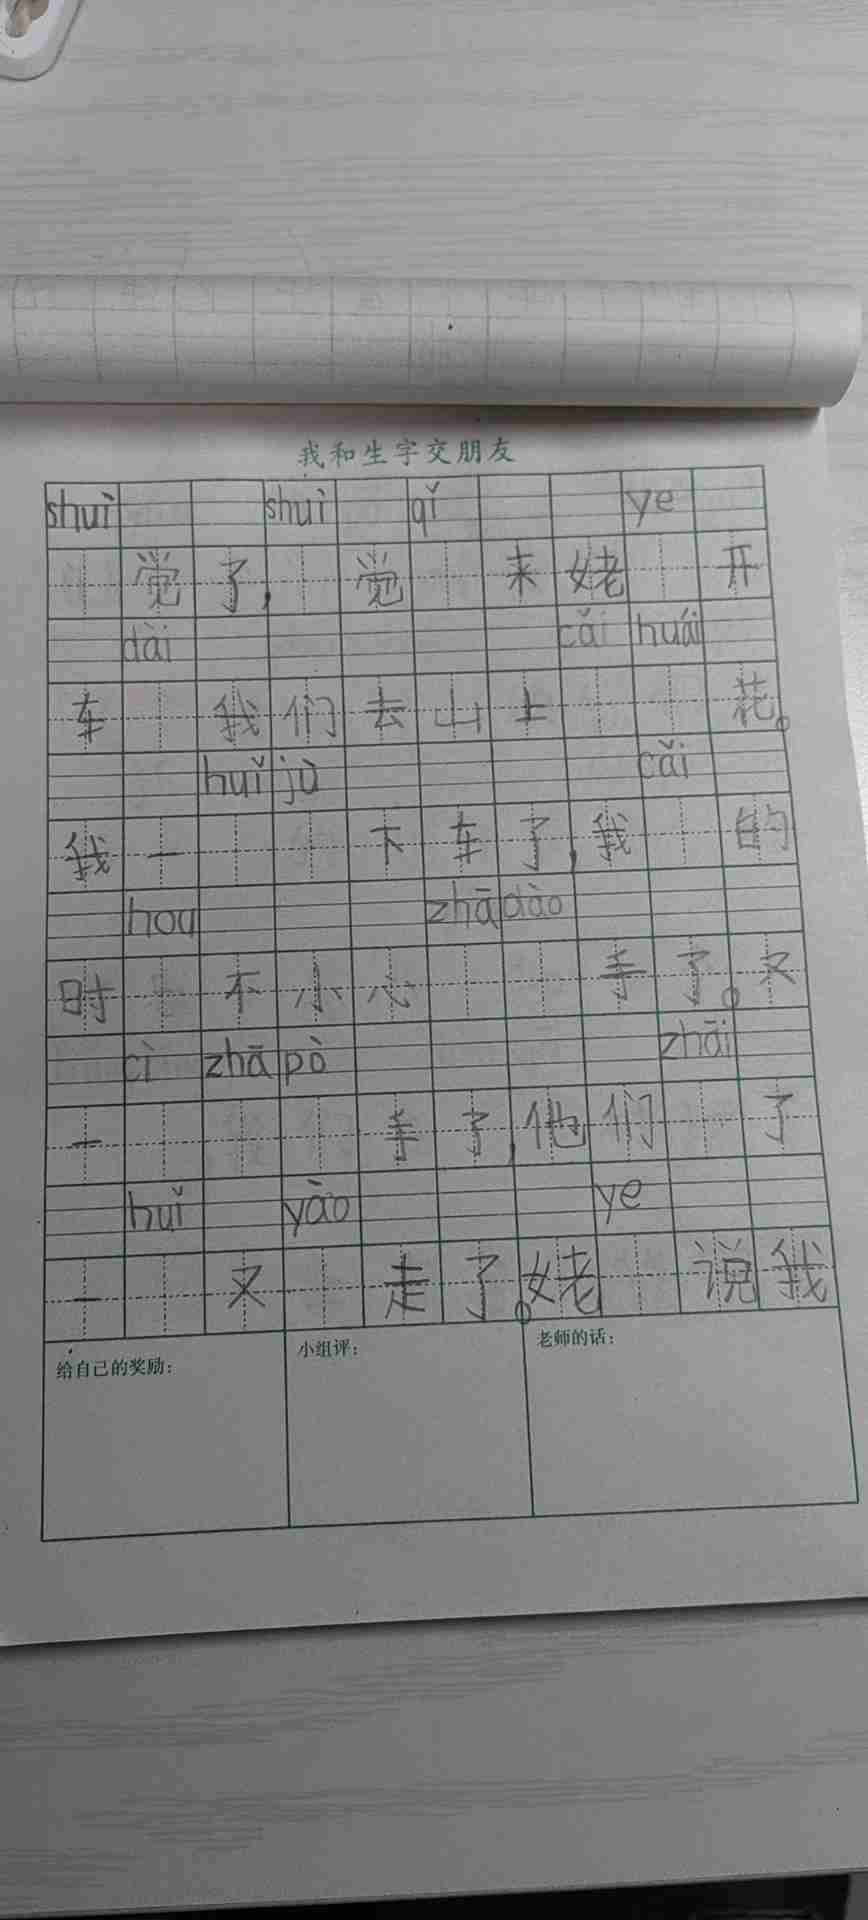 我和生字交朋友
shuì shuì qǐ ye
觉了,觉来姥开
dài cǎi huái
车我们去山上花。
huǐ jù cǎi
我一下车了,我的
hou zhā dào
时不小心手了。又
cì zhā pò
zhāi
一手了,他们了
huǐ yāo ye
一又走了。姥说我
给自己的奖励:
小组评:
老师的话: